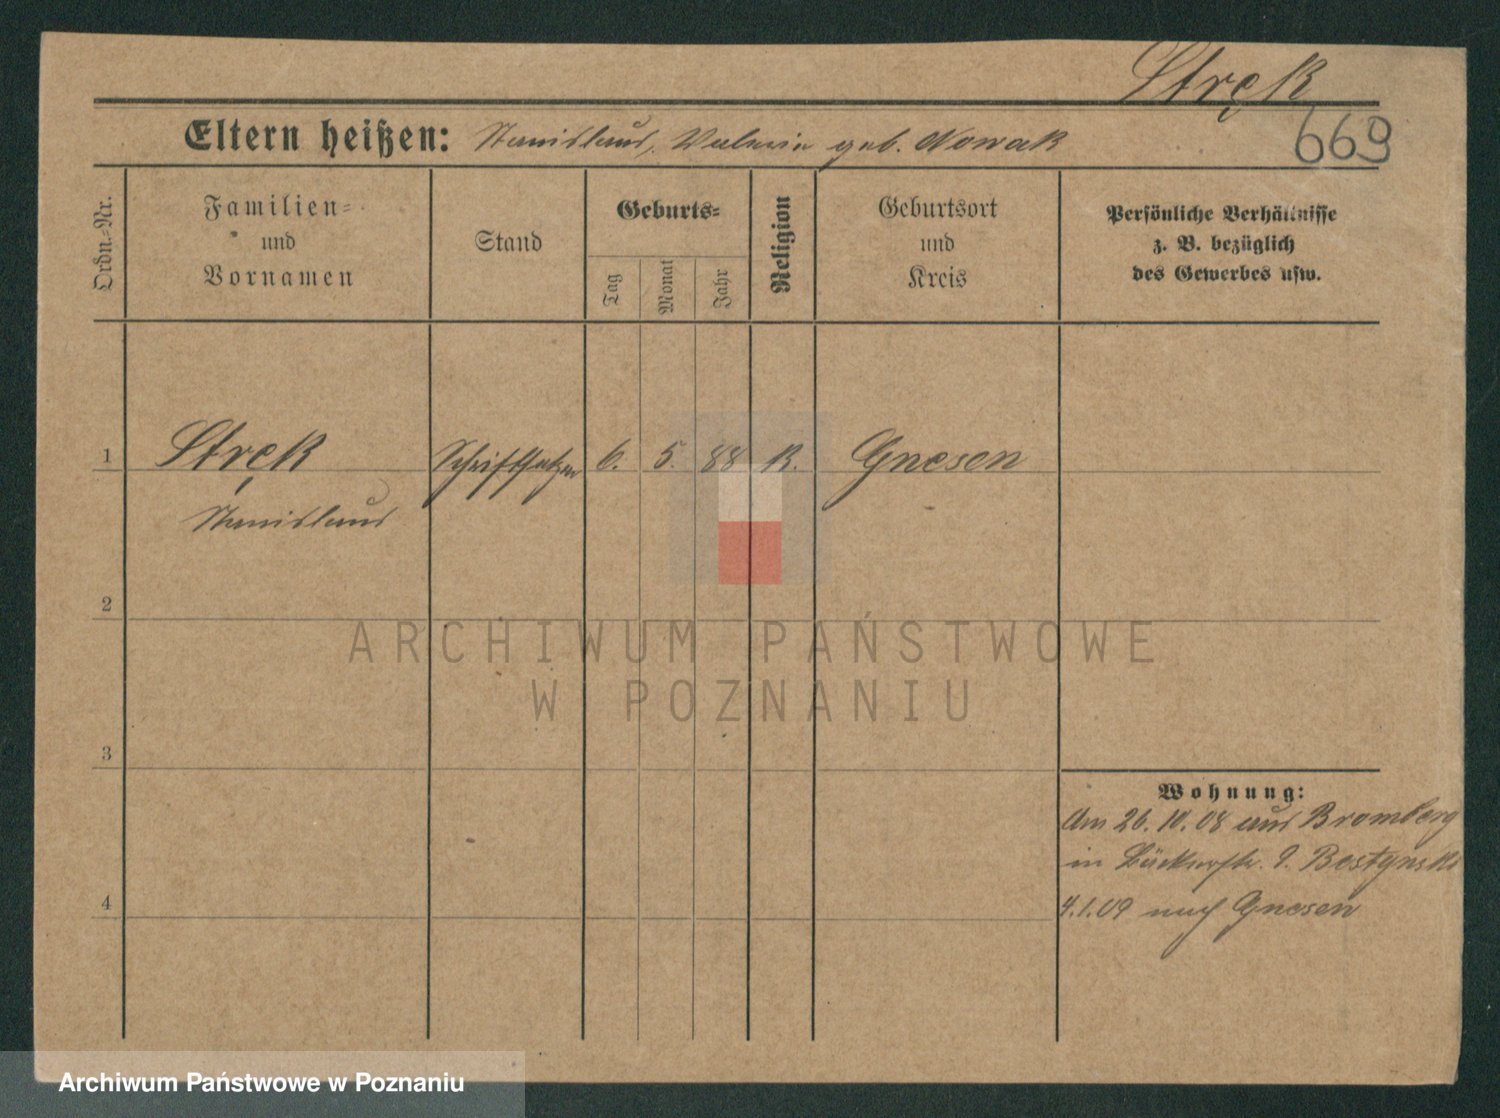 Stręk
Eltern heißen: Stanislaus, Valeria geb. Nowak
669
Ordn.-Nr.
Familien-
und
Vornamen
Stand
Geburts-
Tag
Monat
Jahr
Religion
Geburtsort
und
Kreis
Persönliche Verhältnisse
z. B. bezüglich
des Gewerbes usw.
1
Stręk
Schriftsetzer
6.
5.
88
K.
Gnesen
Stanislaus
2
ARCHIWUM PAŃSTWOWE
W POZNANIU
3
Wohnung:
Am 26.10.08 aus Bromberg
in Bäckerstr. 9. Bestynski
4
4.1.09 nach Gnesen
Archiwum Państwowe w Poznaniu